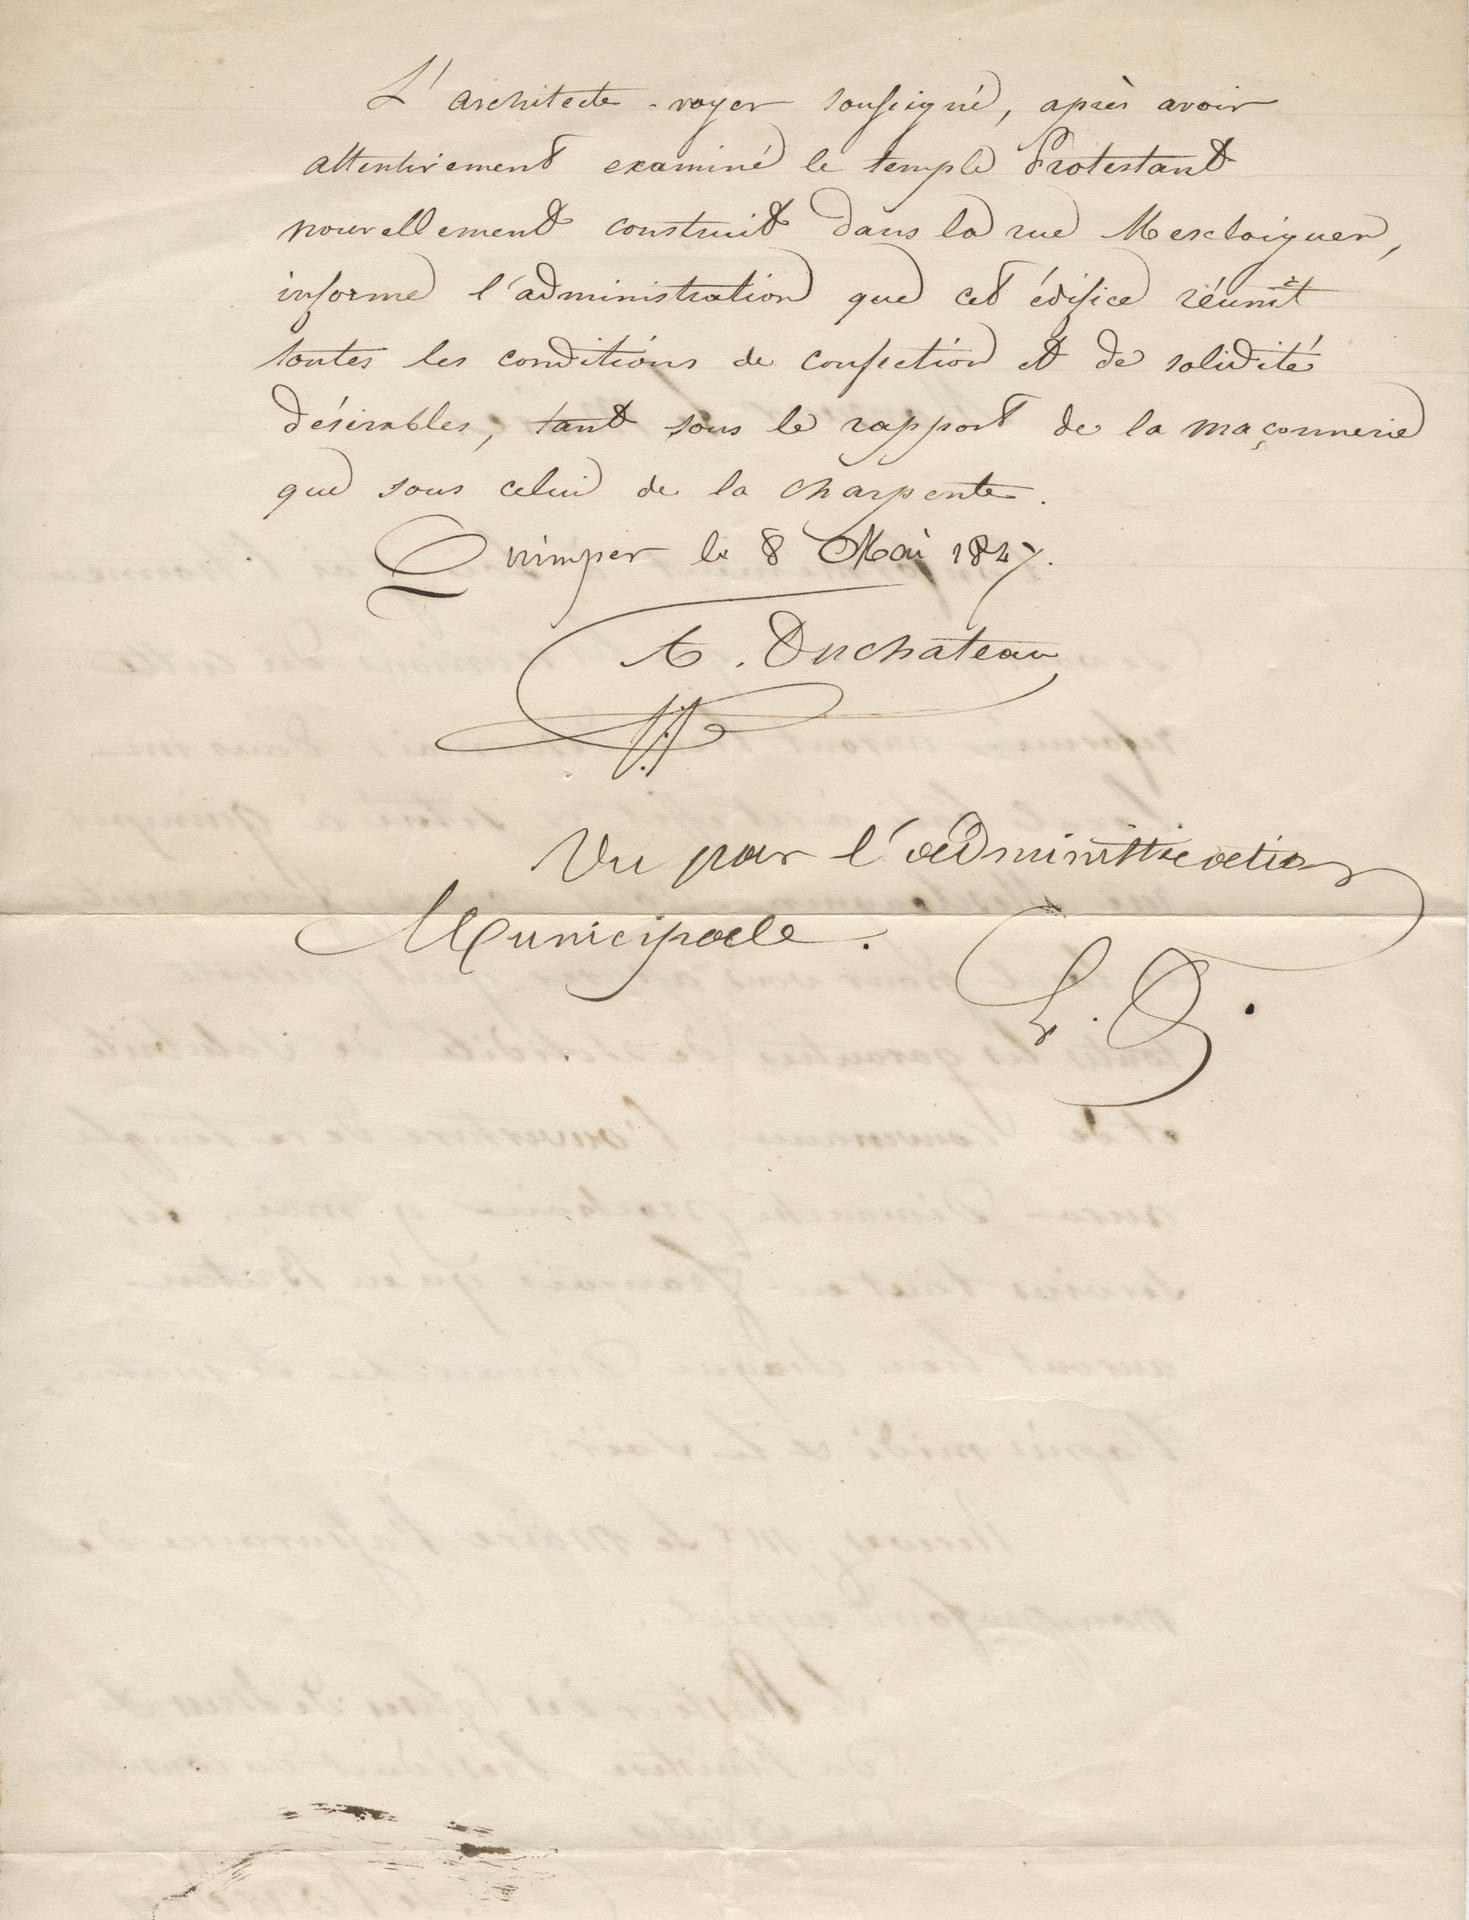 L'architecte-voyer soussigné, après avoir
attentivement examiné le temple Protestant
nouvellement construit dans la rue Mescloiguen,
informe l'administration que cet édifice réunit
toutes les conditions de confection et de solidité
désirables, tant sous le rapport de la maçonnerie
que sous celui de la charpente.
Quimper le 8 Mai 1847.
A. Duchateau
Vu par l'administration
Municipale.